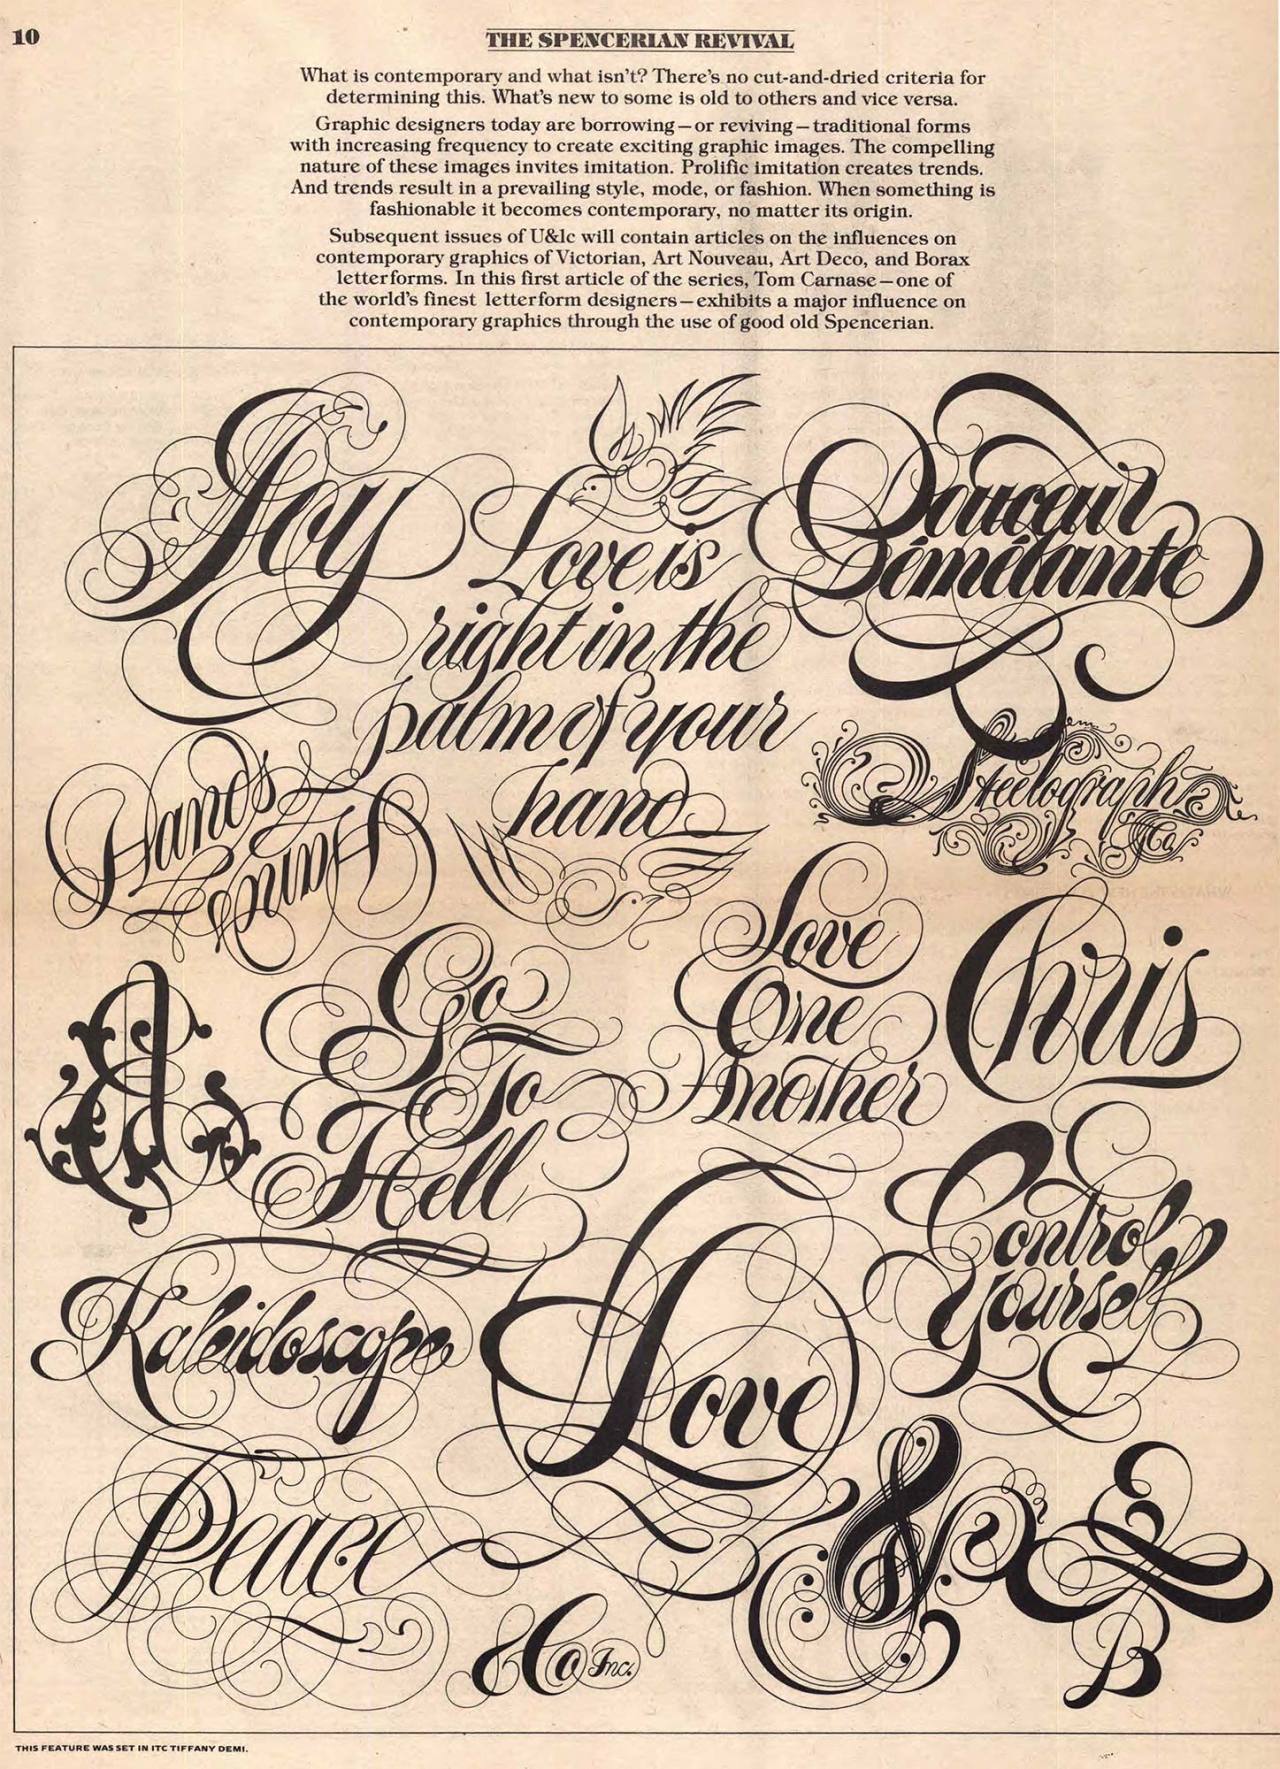 10
THE SPENCERIAN REVIVAL
What is contemporary and what isn't? There's no cut-and-dried criteria for
determining this. What's new to some is old to others and vice versa.
Graphic designers today are borrowing—or reviving—traditional forms
with increasing frequency to create exciting graphic images. The compelling
nature of these images invites imitation. Prolific imitation creates trends.
And trends result in a prevailing style, mode, or fashion. When something is
fashionable it becomes contemporary, no matter its origin.
Subsequent issues of U&lc will contain articles on the influences on
contemporary graphics of Victorian, Art Nouveau, Art Deco, and Borax
letterforms. In this first article of the series, Tom Carnase—one of
the world's finest letterform designers—exhibits a major influence on
contemporary graphics through the use of good old Spencerian.
Joy
Love is
right in the
palm of your
hand
Douceur
Démélante
Hands
Hands
Steelograph
Co
Love
One
Another
Chris
Go
To
Hell
Control
Yourself
Kaleidoscope
Love
Peace
&
E
B
& Co Inc.
THIS FEATURE WAS SET IN ITC TIFFANY DEMI.